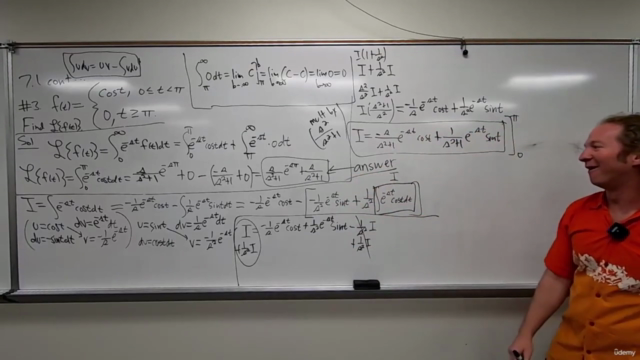 ∫udv = uv - ∫vdu
7.1 cont
#3 f(t) = { cost, 0 ≤ t < π
0, t ≥ π
Find L{f(t)}
∫_π^∞ 0dt = lim_{b→∞} C]_π^b = lim_{b→∞} (C-C) = lim_{b→∞} 0 = 0
I(1+1/s²)
I + 1/s² I
s²/s² I + 1/s² I
I(s²+1/s²) = -1/s e^-st cost + 1/s² e^-st sint
mult by s²/s²+1
I = -s/s²+1 e^-st cost + 1/s²+1 e^-st sint ]_0^π
Sol L{f(t)} = ∫_0^∞ e^-st f(t)dt = ∫_0^π e^-st cost dt + ∫_π^∞ e^-st · 0dt
L{f(t)} = ∫_0^π e^-st cost dt = s/s²+1 e^-sπ + 0 - (-s/s²+1 + 0) = s/s²+1 e^-sπ + s/s²+1 answer
I
I = ∫e^-st cost dt = -1/s e^-st cost - ∫1/s e^-st sint dt = -1/s e^-st cost - 1/s [-1/s e^-st sint + 1/s ∫e^-st cost dt]
u = cost dv = e^-st dt
du = -sint dt v = -1/s e^-st
u = sint dv = e^-st dt
du = cost dt v = -1/s e^-st
I = -1/s e^-st cost + 1/s² e^-st sint - 1/s² I
+1/s² I +1/s² I
udemy